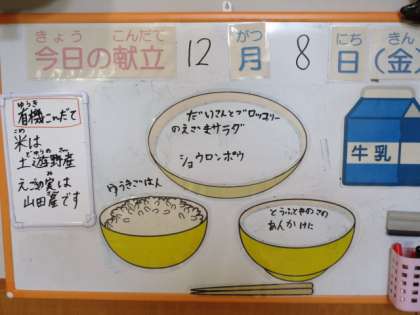 きょう こんだて がつ にち きん
今日の献立 12 月 8 日 (金)
ゆうき
有機こんだて
こめ
米は
土遊野産
えごめ実は
山田産です
だいこんとブロッコリー
のえごまサラダ
ショウロンポウ
ゆうきごはん
とうふときのこの
あんかけに
牛乳